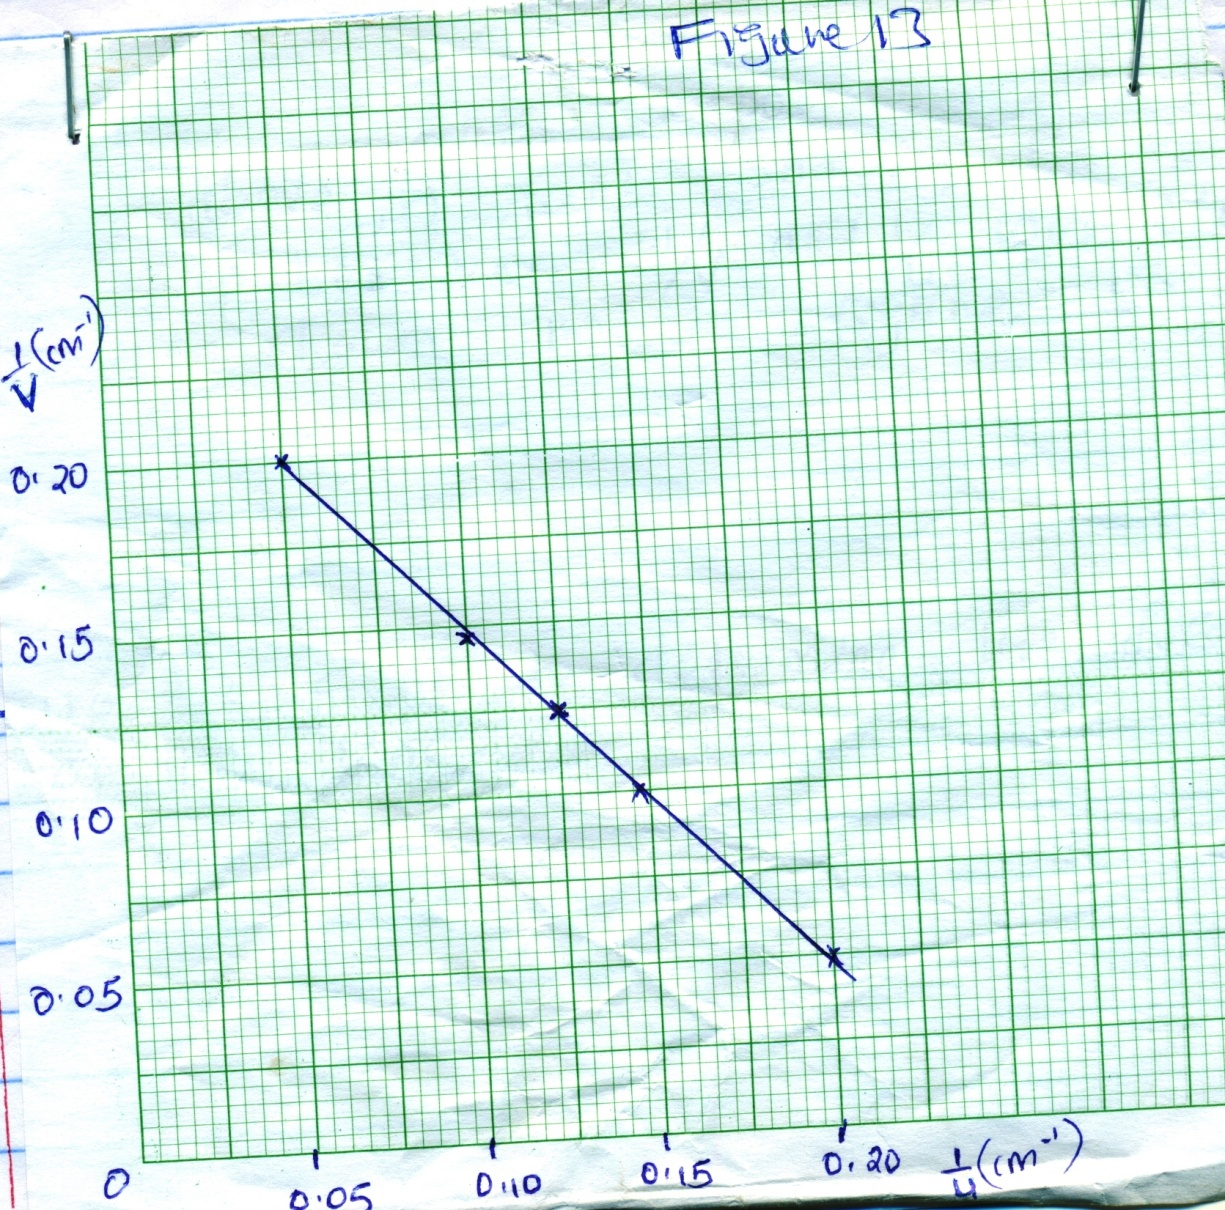 Figure 13
1/V (cm⁻¹)
0.20
0.15
0.10
0.05
0
0.05
0.10
0.15
0.20
1/u (cm⁻¹)